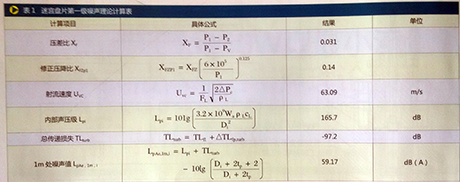 表 1 迷宫盘片第一级噪声理论计算表
计算项目 具体公式 结果 单位
压差比 X_F X_F = (P₁ − P₂) / (P₁ − P_V) 0.031
修正压降比 X_FZp1 X_FZP1 = X_FZ (6×10⁵ / P₁)^0.125 0.14
射流速度 U_vc U_vc = (1 / F_L) √(2△P_c / ρ_L) 63.09 m/s
内部声压级 L_pi L_pi = 101g (3.2×10⁹ W_a ρ_1 c_L / D_i²) 165.7 dB
总传递损失 TL_sum TL_sum = TL_fr + △TL_p,sum -97.2 dB
1m 处噪声值 L_pAe,1m,i L_pAe,1m,i = L_pi + TL_sum 59.17 dB（A）
− 10lg (D_i + 2t_p + 2 / D_i + 2t_p)